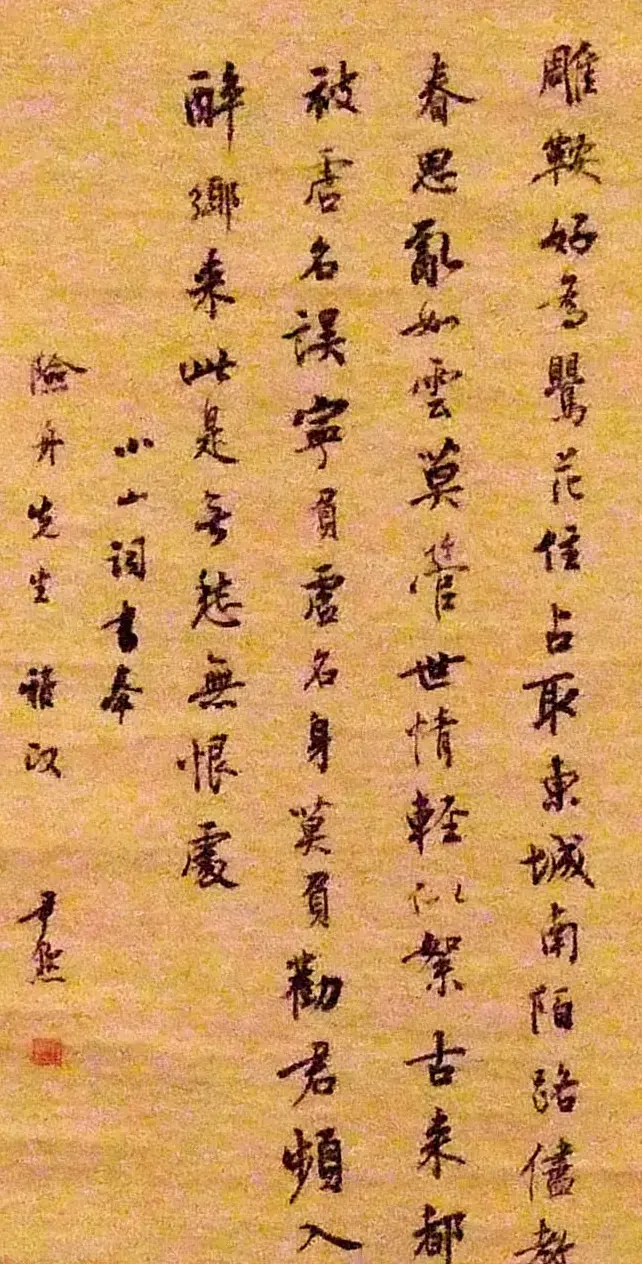 雕鞍好為鶯花住占取東城南陌路儘教
春思亂如雲莫管世情輕似絮古來都
被虛名誤寧負虛名身莫負勸君頻入
醉鄉來此是無愁無恨處
小山詞書奉
險舟先生 政
尹默